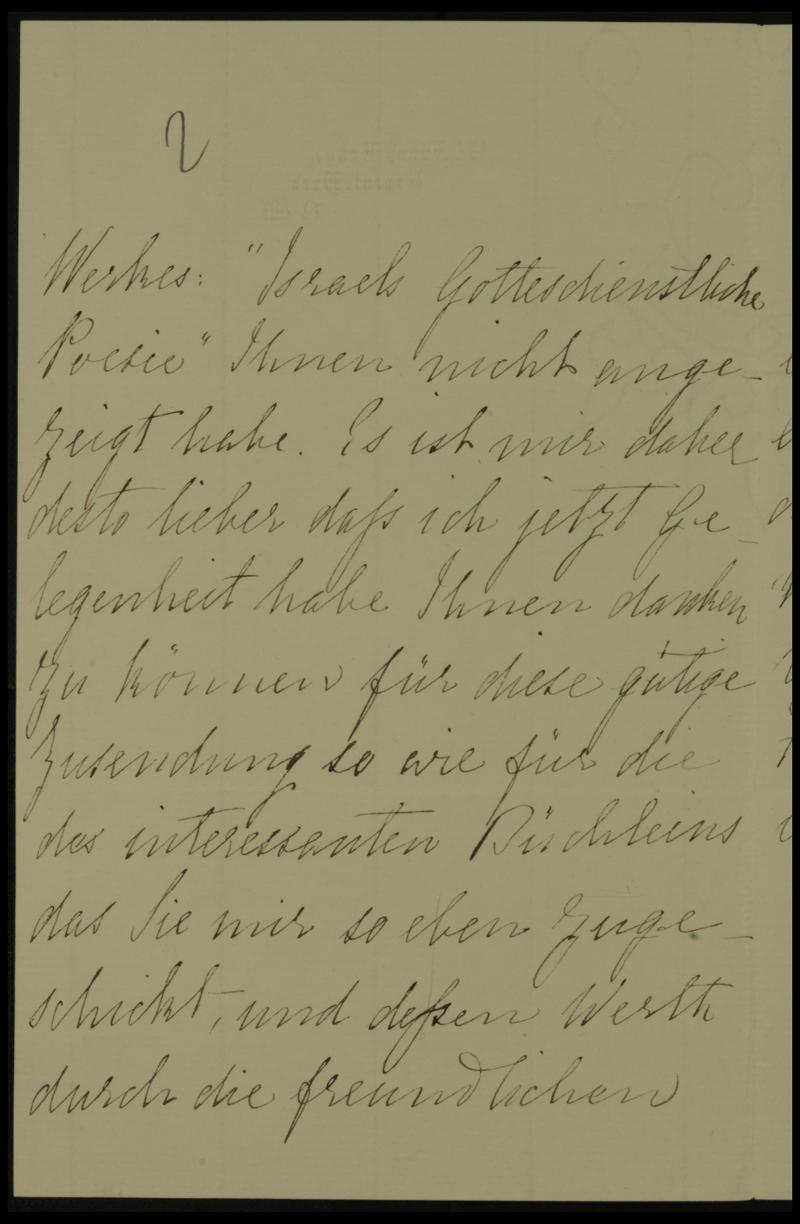 2
Werkes: "Israels Gottesdienstliche
Poesie" Ihnen nicht ange-
zeigt habe. Es ist mir daher
desto lieber daß ich jetzt Ge-
legenheit habe Ihnen danken
zu können für diese gütige
Zusendung so wie für die
des interessanten Büchleins
das Sie mir so eben zuge-
schickt, und deßen Werth
durch die freundlichen